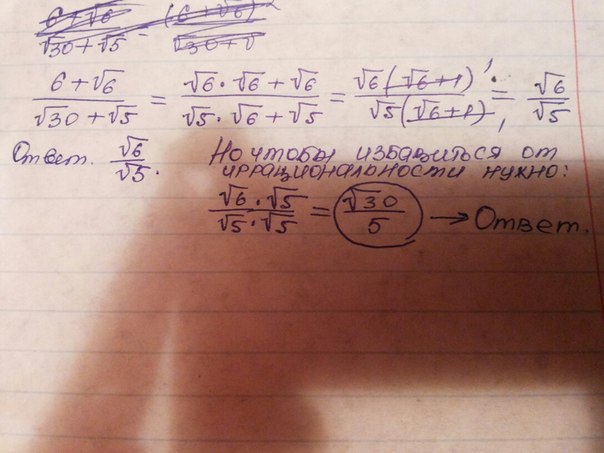 6+√6 / √30+√5 = (6+√6)² / √30+√
6+√6 / √30+√5 = √6·√6+√6 / √5·√6+√5 = √6(√6+1) / √5(√6+1) = √6 / √5
Ответ. √6 / √5. Но чтобы избавиться от
иррациональности нужно:
√6·√5 / √5·√5 = √30 / 5 → Ответ.